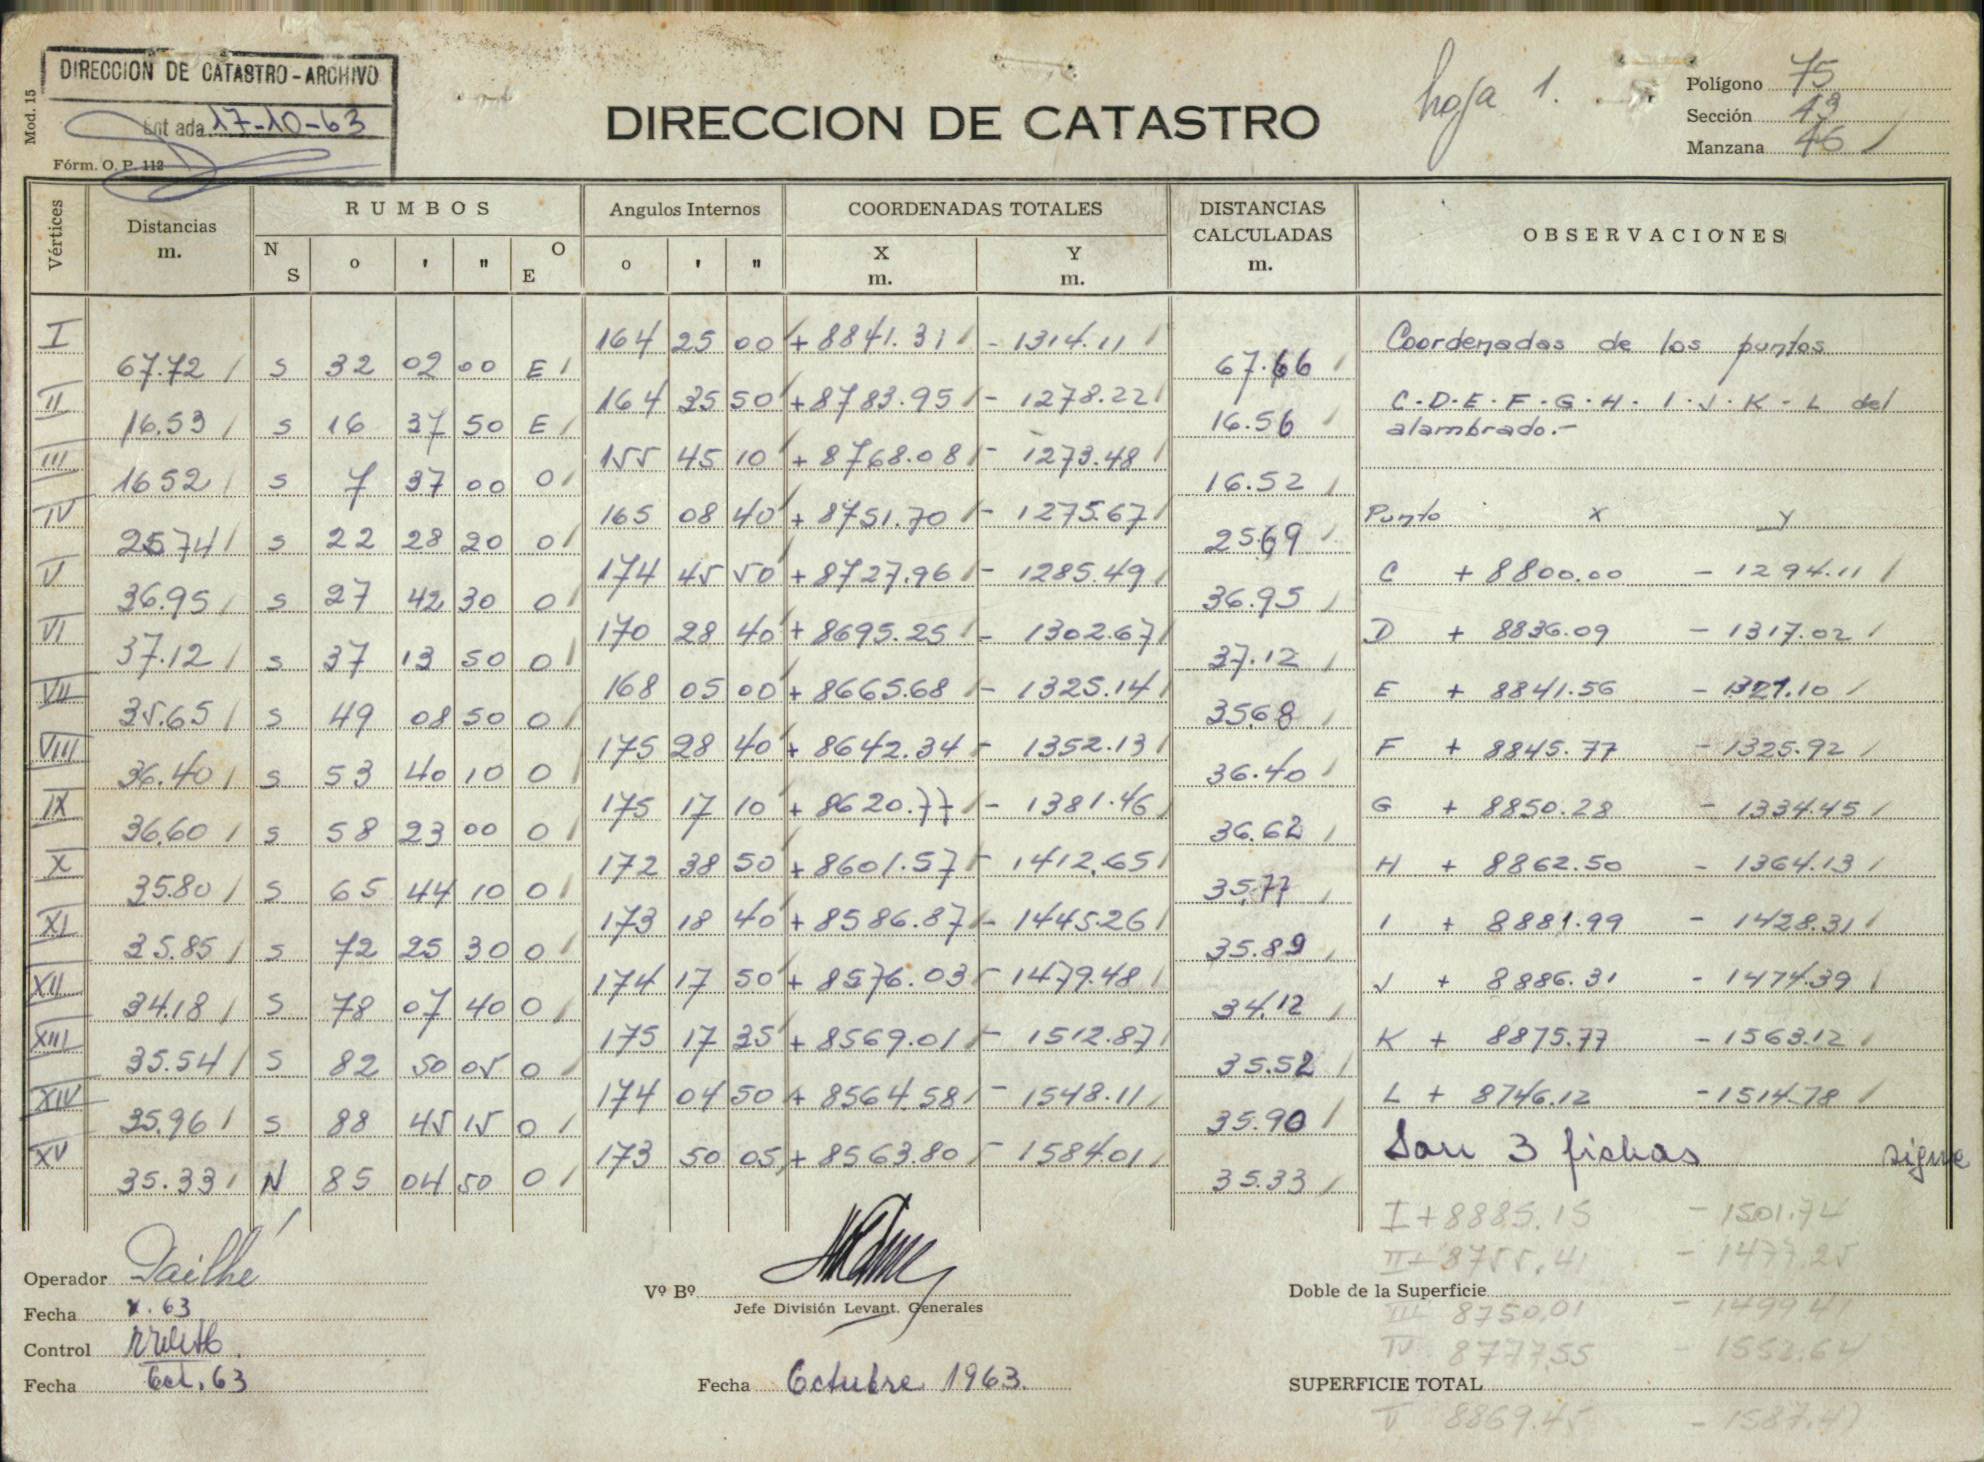 DIRECCION DE CATASTRO-ARCHIVO
17-10-63
Mod. 15
Fórm. O. P. 112
DIRECCION DE CATASTRO
hoja 1.
Polígono 75
Sección 43
Manzana 46
Vértices
Distancias m.
RUMBOS
N S o ' " O E
Angulos Internos
o ' "
COORDENADAS TOTALES
X m. Y m.
DISTANCIAS CALCULADAS m.
OBSERVACIONES
I 164 25 00 + 8841.31 - 1314.11 Coordenadas de los puntos
67.72 S 32 02 00 E 67.66
II 164 35 50 + 8783.95 - 1278.22 C-D-E-F-G-H-I-J-K-L del
16.53 S 16 37 50 E 16.56 alambrado.-
III 155 45 10 + 8768.08 - 1273.48
16.52 S 7 37 00 O 16.52
IV 165 08 40 + 8751.70 - 1275.67 Punto X Y
25.74 S 22 28 20 O 25.69
V 174 45 50 + 8727.96 - 1285.49 C + 8800.00 - 1294.11
36.95 S 27 42 30 O 36.95
VI 170 28 40 + 8695.25 - 1302.67 D + 8836.09 - 1317.02
37.12 S 37 13 50 O 37.12
VII 168 05 00 + 8665.68 - 1325.14 E + 8841.56 - 1321.10
35.65 S 49 08 50 O 35.68
VIII 175 28 40 + 8642.34 - 1352.13 F + 8845.77 - 1325.92
36.40 S 53 40 10 O 36.40
IX 175 17 10 + 8620.77 - 1381.46 G + 8850.28 - 1334.45
36.60 S 58 23 00 O 36.62
X 172 38 50 + 8601.57 - 1412.65 H + 8862.50 - 1364.13
35.80 S 65 44 10 O 35.77
XI 173 18 40 + 8586.87 - 1445.26 I + 8881.99 - 1428.31
35.85 S 72 25 30 O 35.89
XII 174 17 50 + 8576.03 - 1479.48 J + 8886.31 - 1474.39
34.18 S 78 07 40 O 34.12
XIII 175 17 35 + 8569.01 - 1512.87 K + 8875.77 - 1563.12
35.54 S 82 50 05 O 35.52
XIV 174 04 50 + 8564.58 - 1548.11 L + 8746.12 - 1514.78
35.96 S 88 45 15 O 35.90
XV 173 50 05 + 8563.80 - 1584.01 Son 3 fichas sigue
35.33 N 85 04 50 O 35.33
I + 8885.15 - 1501.74
II + 8755.41 - 1477.25
Operador Dailhé
Vº Bº
Jefe División Levant. Generales
Doble de la Superficie
Fecha X. 63
III 8750.01 - 1499.41
Control
IV 8777.55 - 1553.64
Fecha Oct. 63
Fecha Octubre 1963.
SUPERFICIE TOTAL
V 8869.45 - 1587.47